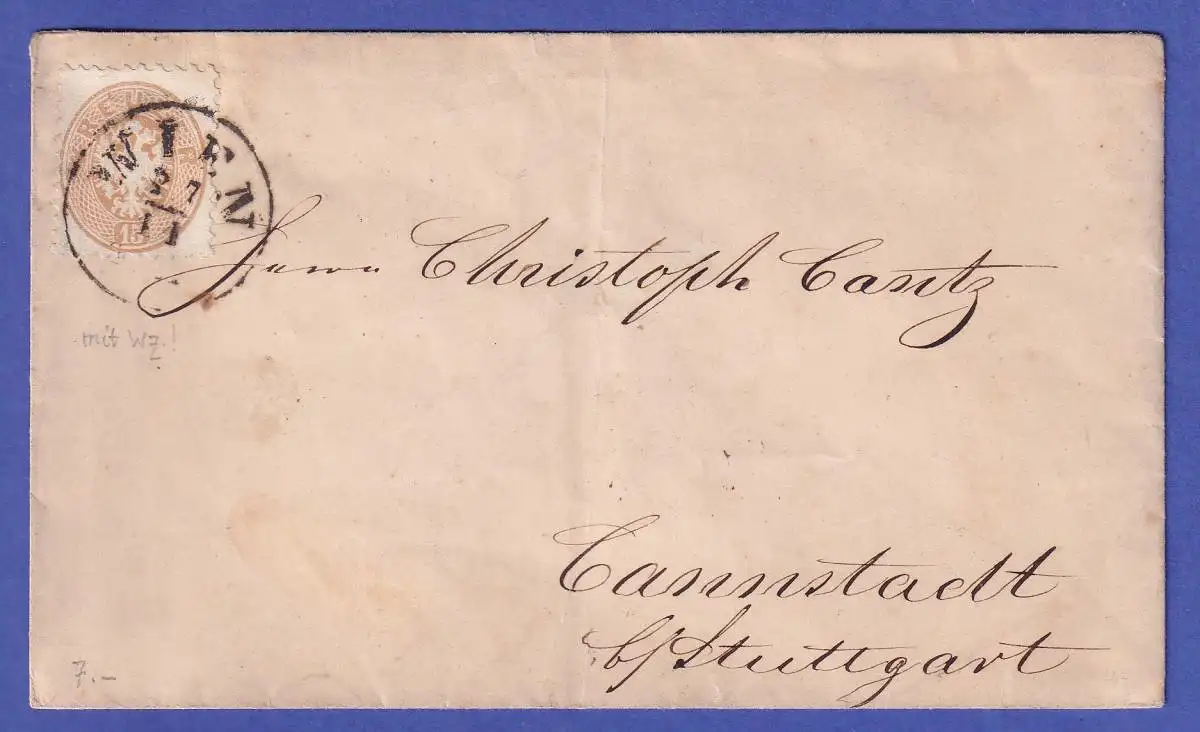 KREUZER
15
WIEN
mit WZ!
Herrn Christoph Cantz
Cannstadt
b/Stuttgart
7.–